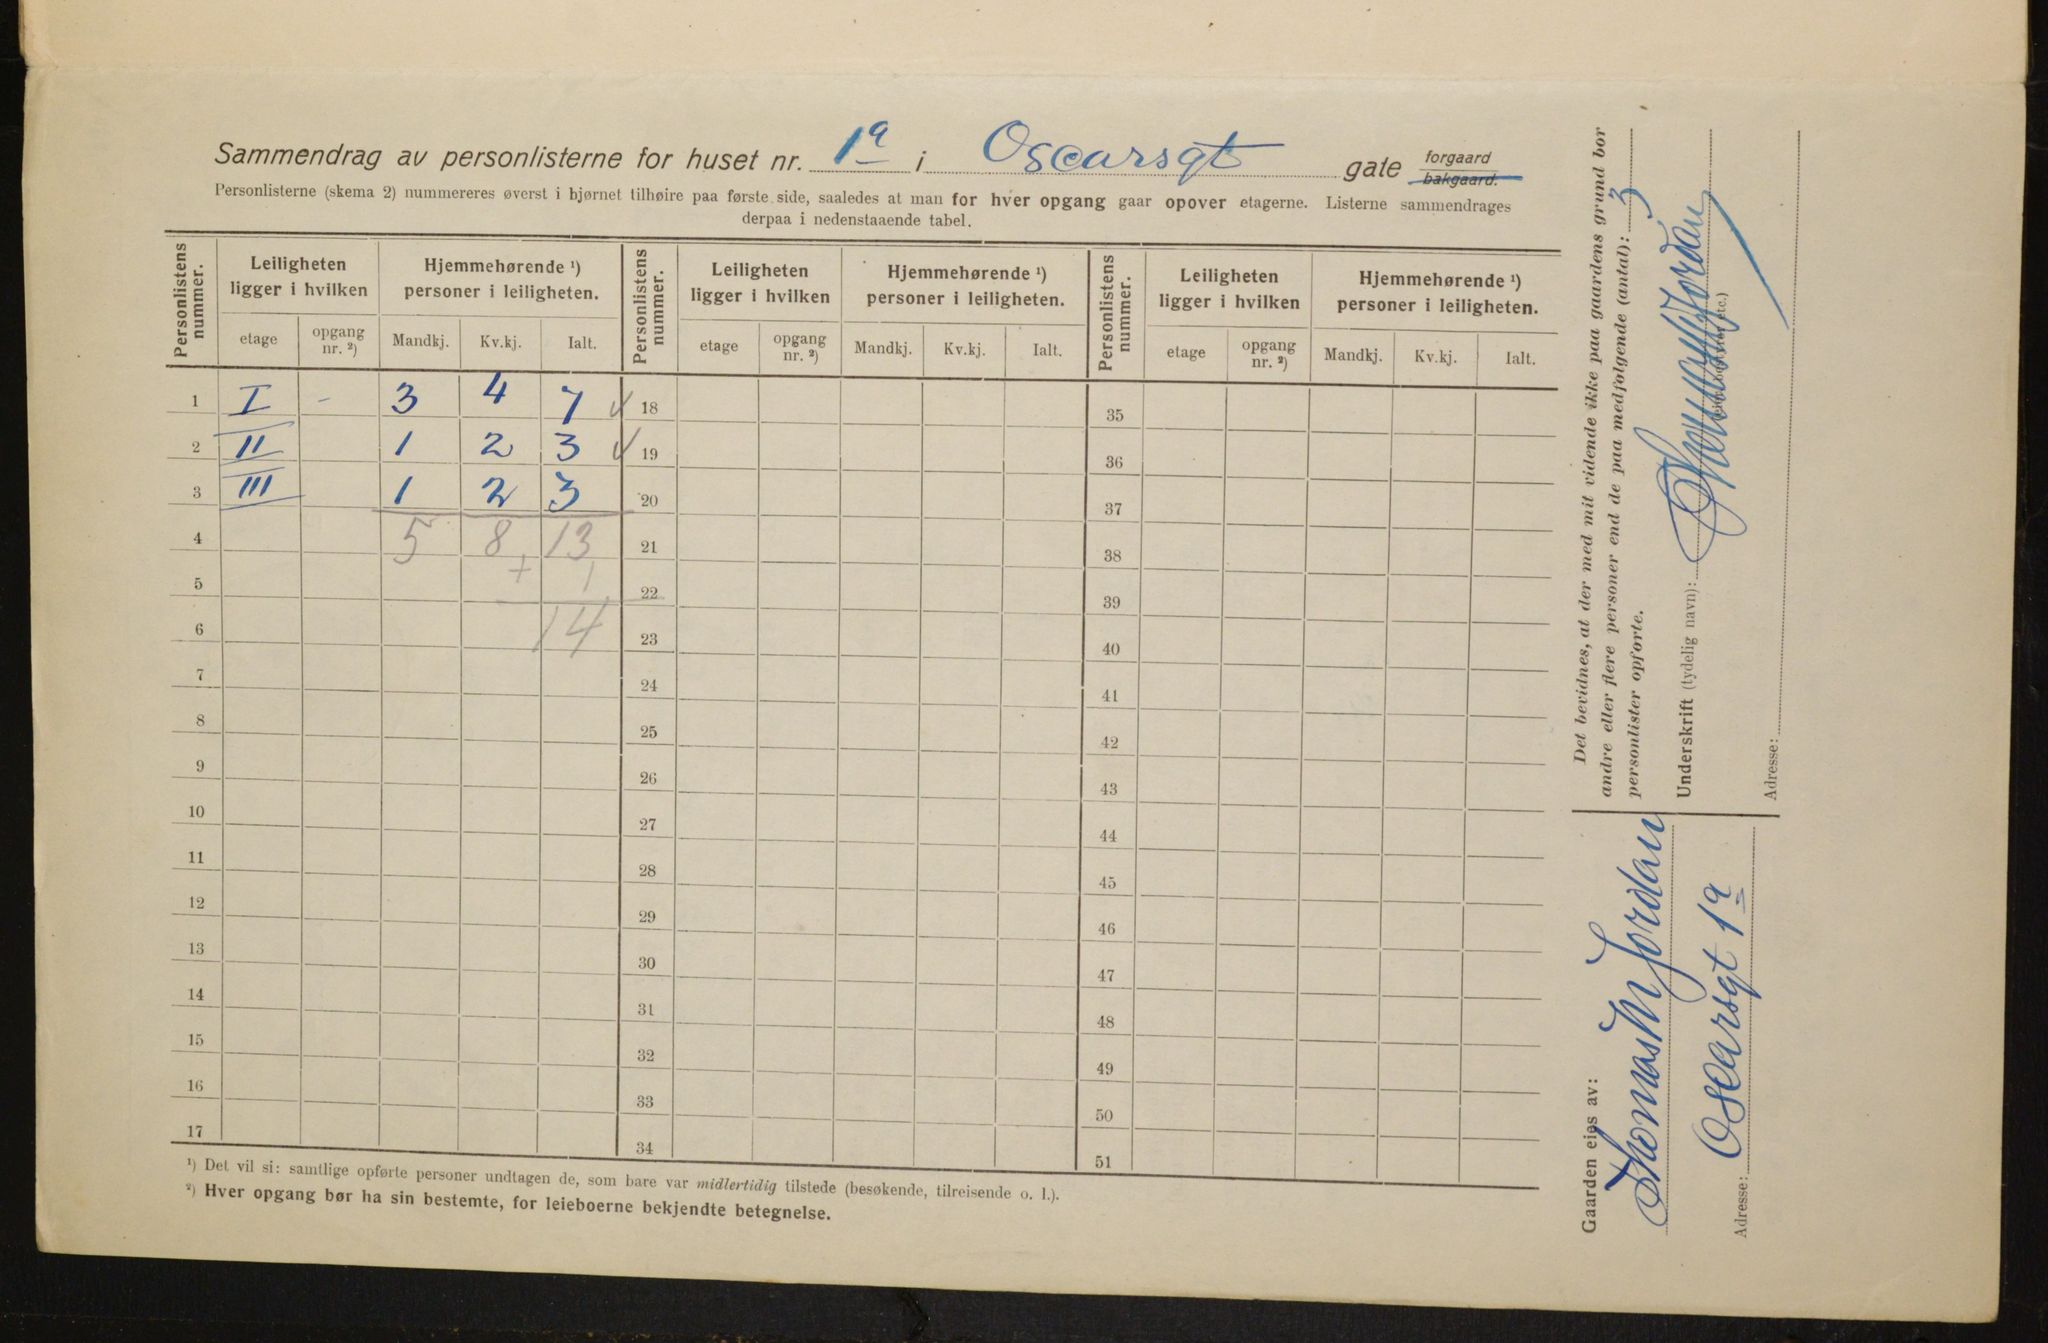 Sammendrag av personlisterne for huset nr. 1a i Oscarsgt gate forgaard bakgaard.
Personlisterne (skema 2) nummereres øverst i bjørnet tilhøire paa første side, saaledes at man for hver opgang gaar opover etagerne. Listerne sammendrages
derpaa i nedenstaaende tabel.
Personlistens nummer. Leiligheten ligger i hvilken Hjemmehørende ¹) personer i leiligheten. Personlistens nummer. Leiligheten ligger i hvilken Hjemmehørende ¹) personer i leiligheten. Personlistens nummer. Leiligheten ligger i hvilken Hjemmehørende ¹) personer i leiligheten.
etage opgang nr. ²) Mandkj. Kv.kj. Ialt. etage opgang nr. ²) Mandkj. Kv.kj. Ialt. etage opgang nr. ²) Mandkj. Kv.kj. Ialt.
1 I - 3 4 7 18 35
2 II 1 2 3 19 36
3 III 1 2 3 20 37
4 5 8 13 21 38
5 + 1 22 39
6 14 23 40
7 24 41
8 25 42
9 26 43
10 27 44
11 28 45
12 29 46
13 30 47
14 31 48
15 32 49
16 33 50
17 34 51
¹) Det vil si: samtlige opførte personer undtagen de, som bare var midlertidig tilstede (besøkende, tilreisende o. l.).
²) Hver opgang bør ha sin bestemte, for leieboerne bekjendte betegnelse.
Det bevidnes, at der med mit vidende ikke paa gaardens grund bor
andre eller flere personer end de paa medfølgende (antal): 3
personlister opførte.
Underskrift (tydelig navn): Thomas M Jordan
Adresse:
Gaarden eies av: Thomas M Jordan
Adresse: Oscarsgt 1a